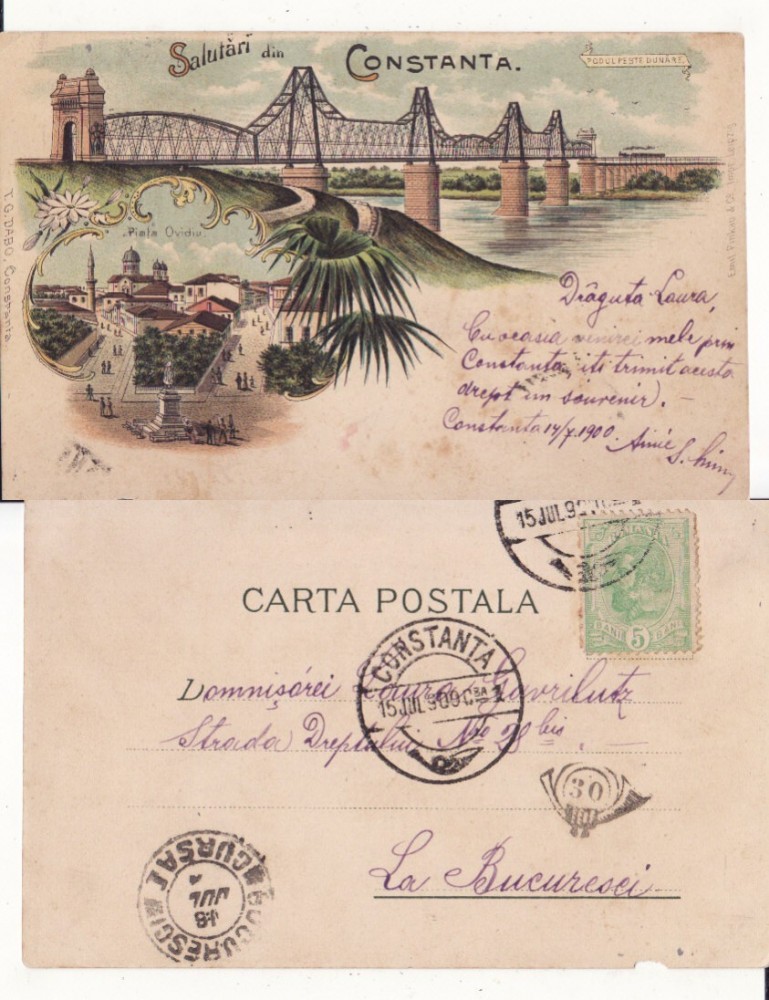 Salutări din CONSTANTA.
PODUL PESTE DUNĂRE.
Piata Ovidiu.
T.G. DABO, Constanta.
Drăguta Laura,
Cu ocasia venirei mele prin
Constanta iti trimit acesta
drept un souvenir. —
Constanta 14/7. 1900.
S.
15 JUL 90
ROMANIA
5 BANI 5 BANI
CARTA POSTALA
CONSTANTA
15 JUL 900
Domnișórei Laura Gavrilutz
Strada Dreptului No 28 bis. —
30
La Bucuresci
BUCURESCI
CURSA I
18 JUL